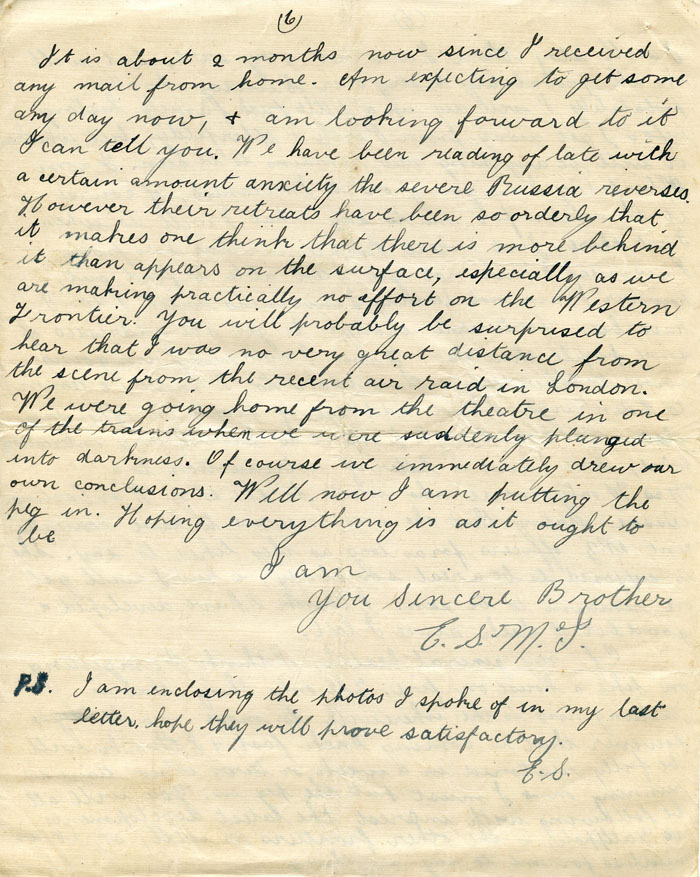 6
It is about 2 months now since I received
any mail from home. Am expecting to get some
any day now, & am looking forward to it
I can tell you. We have been reading of late with
a certain amount anxiety the severe Russia reverses.
However their retreats have been so orderly that
it makes one think that there is more behind
it than appears on the surface, especially as we
are making practically no effort on the Western
Frontier. You will probably be surprised to
hear that I was no very great distance from
the scene from the recent air raid in London.
We were going home from the theatre in one
of the trains when we were suddenly plunged
into darkness. Of course we immediately drew our
own conclusions. Well now I am putting the
peg in. Hoping everything is as it ought to
be
I am
You Sincere Brother
E. S.
P.S. I am enclosing the photos I spoke of in my last
letter, hope they will prove satisfactory.
E.S.